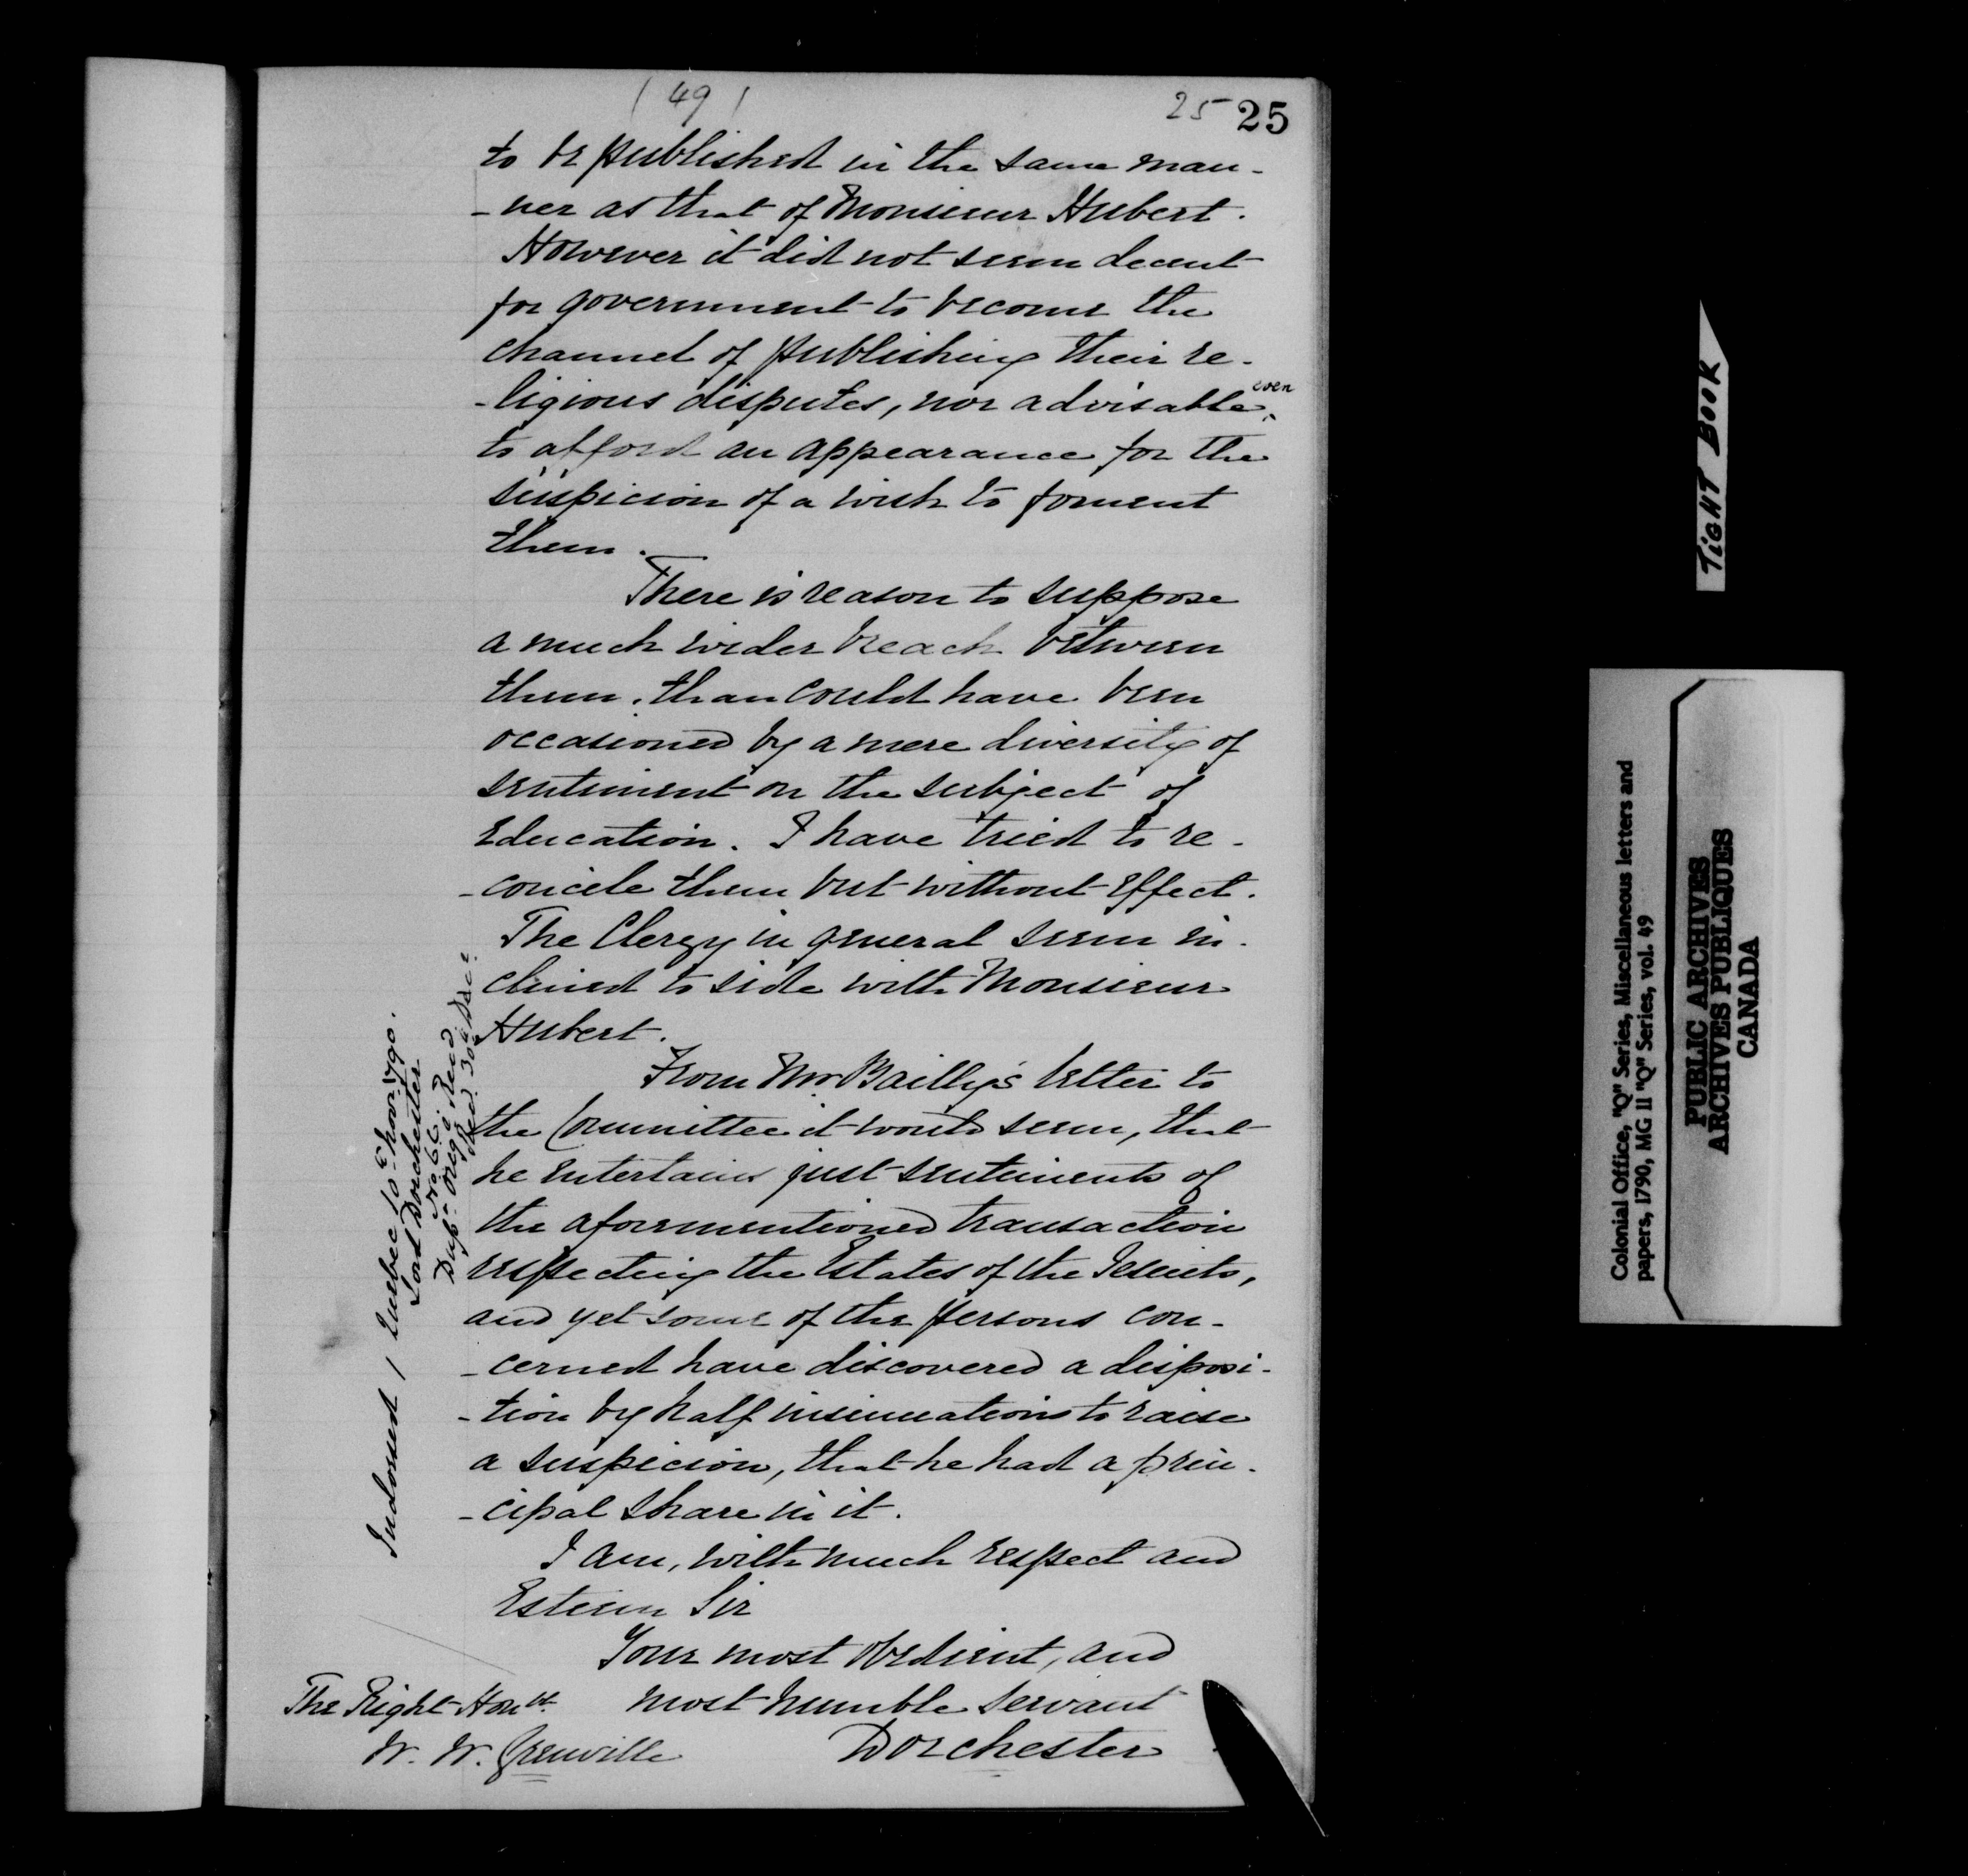 ( 49 )
25 25
to be published in the same man-
-ner as that of Monsieur Hubert.
However it did not seem decent
for government to become the
channel of publishing their re-
-ligious disputes, nor advisable even
to afford an appearance for the
suspicion of a wish to foment
them.
There is reason to suppose
a much wider breach between
them, than could have been
occasioned by a mere diversity of
sentiment on the subject of
Education. I have tried to re-
-concile them but without effect.
The Clergy in general seem in-
clined to side with Monsieur
Hubert.
From Mr. Bailly's letter to
the Committee it would seem, that
he entertains just sentiments of
the aforementioned transaction
respecting the Estates of the Jesuits,
and yet some of the persons con-
-cerned have discovered a disposi-
-tion by half insinuations to raise
a suspicion, that he had a prin-
-cipal share in it.
I am, with much respect and
Esteem Sir
Your most obedient, and
most humble servant
Dorchester
The Right Honble.
W. W. Grenville
Indorsed / Quebec 10th Novr. 1790.
Lord Dorchester
No 66.
Dupte. Origl. Recd.
Recd. 30th Decr.
TIGHT BOOK
Colonial Office, "Q" Series, Miscellaneous letters and
papers, 1790, MG 11 "Q" Series, vol. 49
PUBLIC ARCHIVES
ARCHIVES PUBLIQUES
CANADA